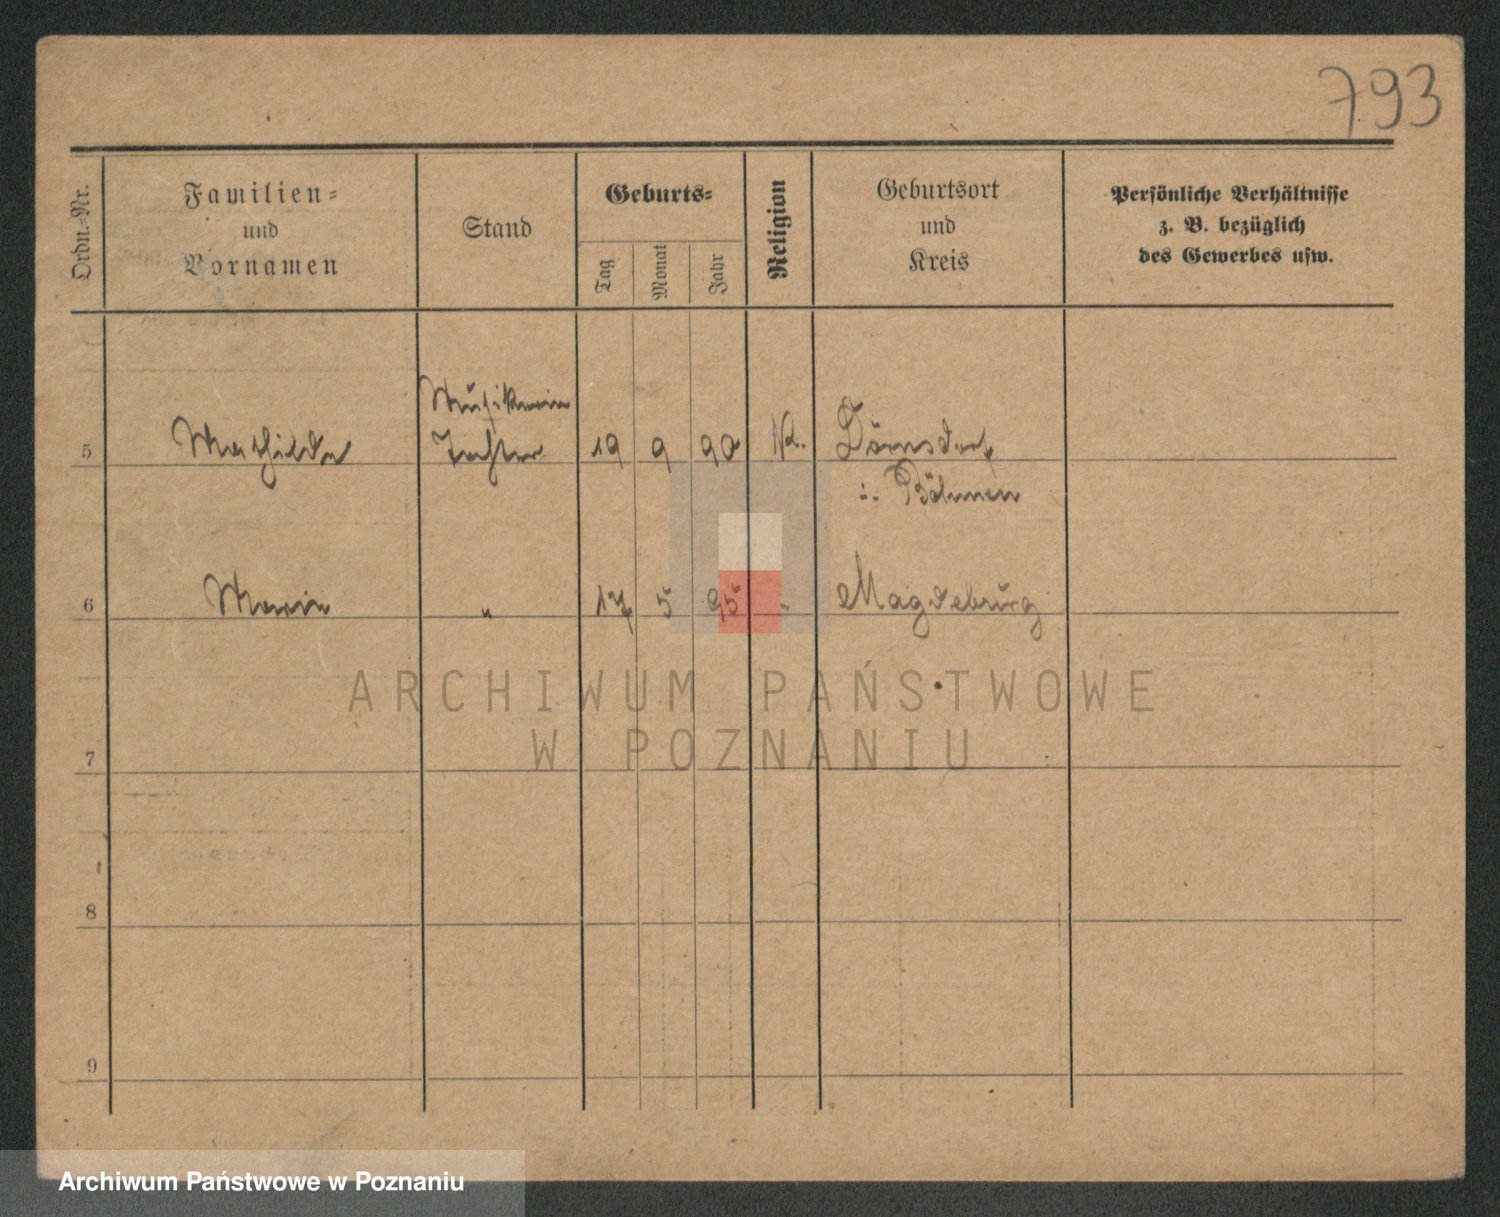 793
Ordn.-Nr.
Familien-
und
Vornamen
Stand
Geburts-
Tag
Monat
Jahr
Religion
Geburtsort
und
Kreis
Persönliche Verhältnisse
z. B. bezüglich
des Gewerbes usw.
Musikerin
5 Mathilde Tochter 19 9 90 Dörnsdorf
i. Böhmen
6 Marie " 17 5 95 " Magdeburg
ARCHIWUM PAŃSTWOWE
W POZNANIU
7
8
9
Archiwum Państwowe w Poznaniu